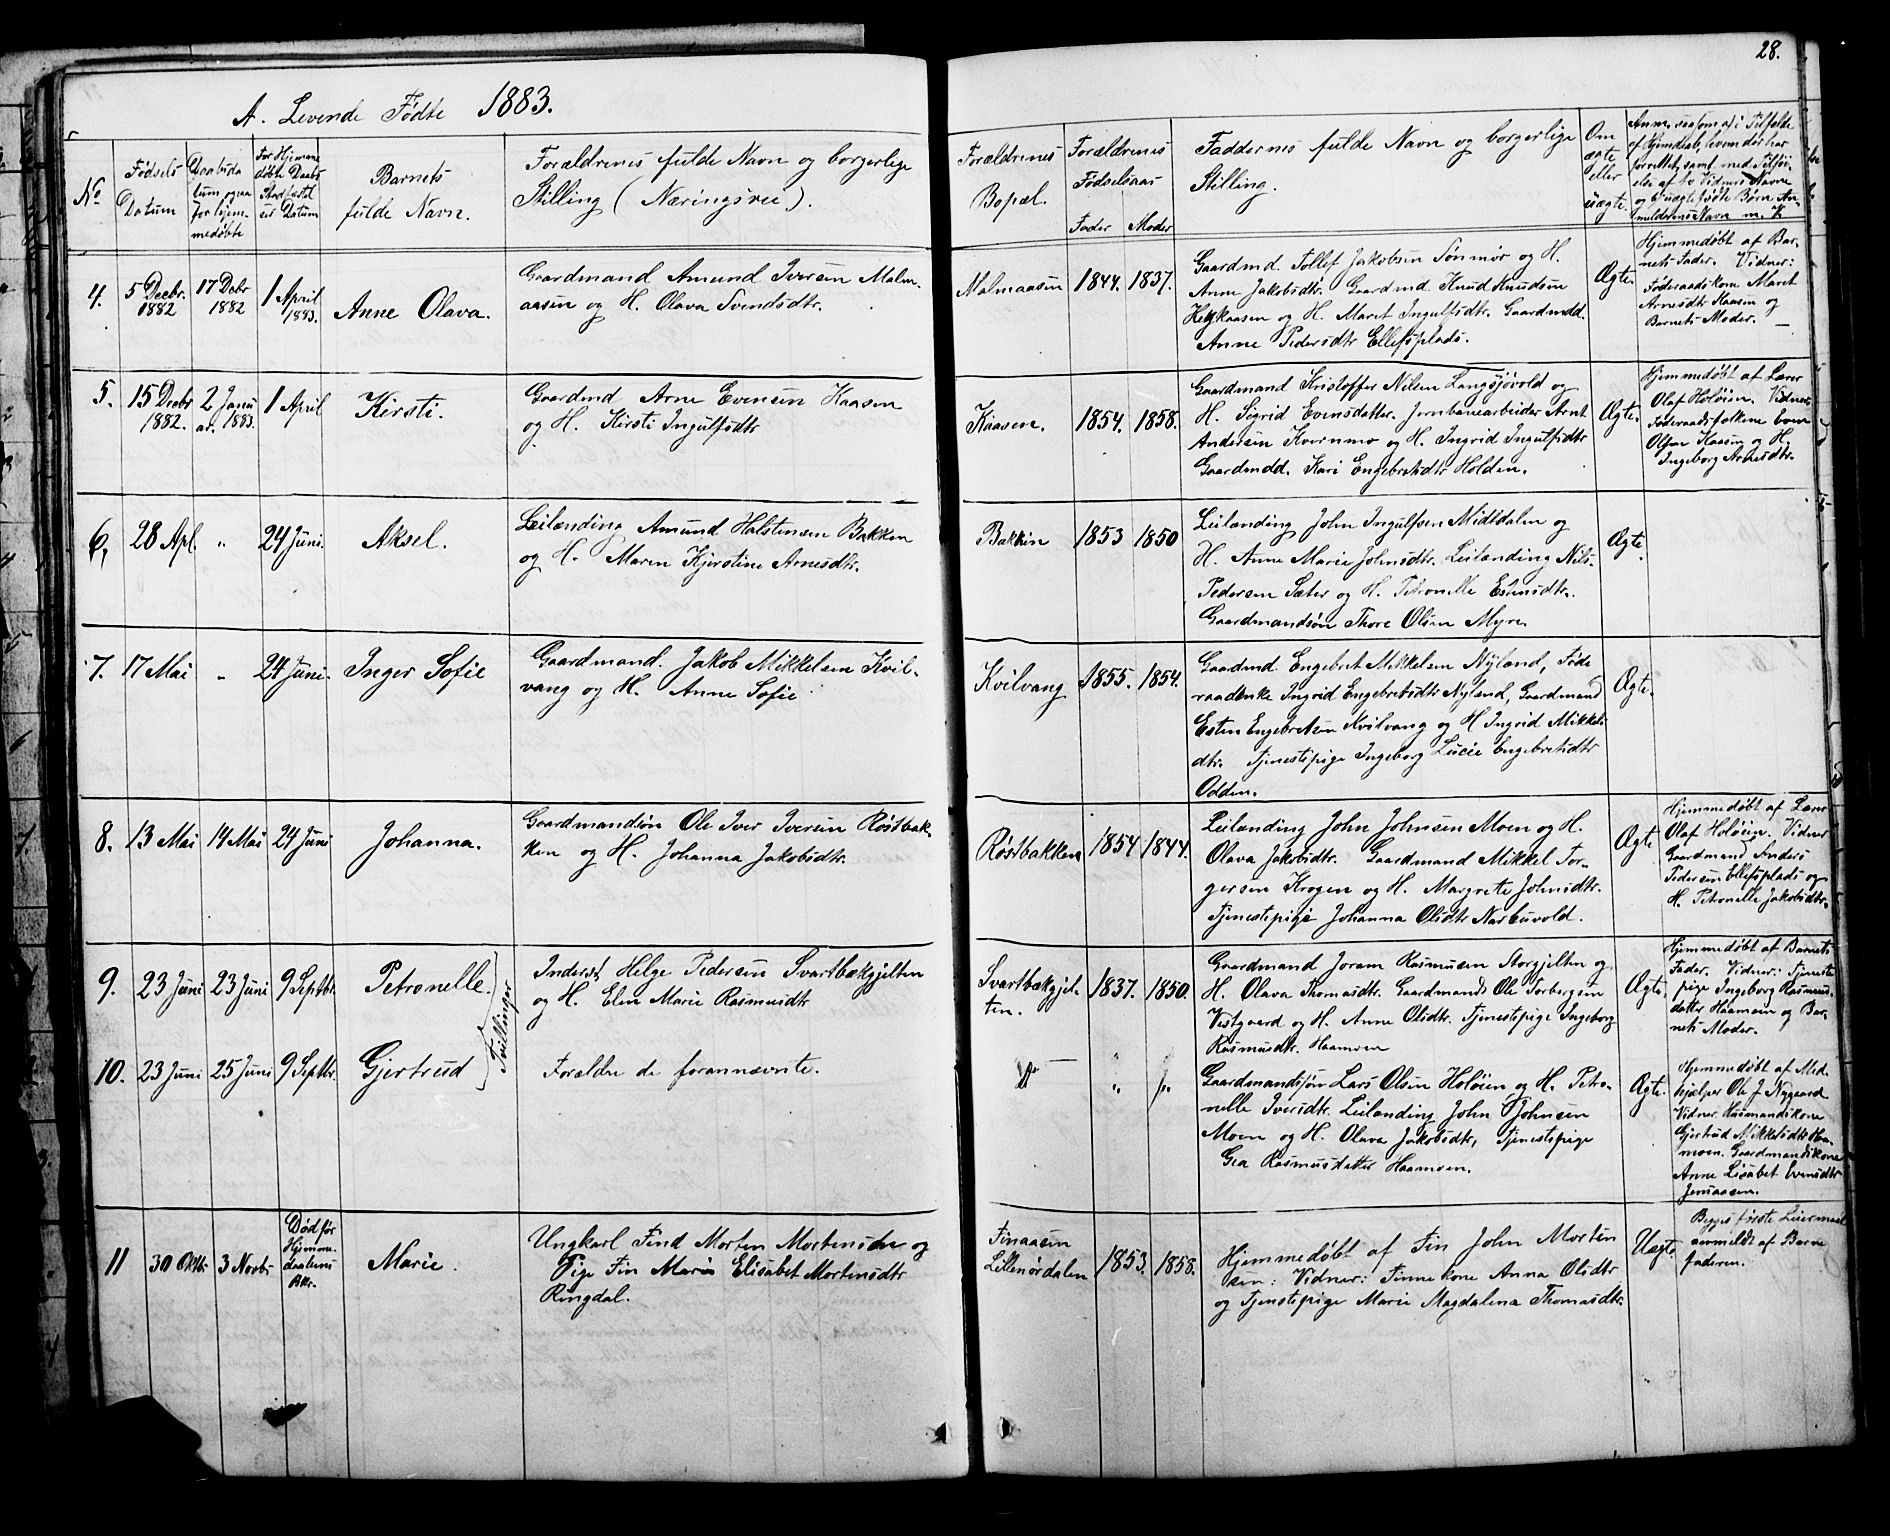 28.
A. Levende Fødte 1883.
No
Fødsels
Datum
Daabsda
tum ogsaa
for hjem-
medøbte
For Hjemme
døbte Daabs
Stadfæstel
ses Datum
Barnets
fulde Navn.
Forældrenes fulde Navn og borgerlige
Stilling (Næringsvei).
Forældrenes
Bopæl.
Forældrenes
Fødselsaar
Fader Moder
Faddernes fulde Navn og borgerlige
Stilling.
Om
ægte
eller
uægte.
4. 5 Decbr. 1882
17 Debr 1882
1 April 1883.
Anne Olava.
Gaardmand Amund Iversen Malm-
aasen og H. Olava Svendsdtr.
Malmaasen 1844. 1837.
Gaardmd. Tollef Jakobsen Sønmør og H.
Anne Jakobsdtr. Gaardmd Knud Knudsen
Hegkaasen og H. Maret Ingulfsdtr. Gaardmdd.
Anne Pedersdtr Ellefsplads.
Ægte.
Hjemmedøbt af Bar-
nets Fader. Vidner:
Føderaadskone Maret
Arnesdtr Kaasen og
Barnets Moder. —
5. 15 Decbr 1882.
2 Janu ar. 1883.
1 April
Kirsti.
Gaardmd Arne Evensen Kaasen
og H. Kirsti Ingulfsdtr
Kaasen. 1854. 1858.
Gaardmand Kristoffer Nilsen Langsjøvold og
H. Sigrid Evensdatter. Jernbanearbeider Arnt
Andersen Kvernmo og H. Ingrid Ingulfsdtr
Gaardmdd. Kari Engebretsdtr Holden.
Ægte.
Hjemmedøbt af Lærer
Olaf Holøien. Vidner
Føderaadsfolkene Even
Olsen Kaasen og H.
Ingeborg Arnesdtr.
6, 28 Apl. " 24 Juni. Aksel.
Leilænding Amund Halstensen Bakken
og H. Maren Kjerstine Arnesdtr.
Bakken 1853 1850
Leilænding John Ingulfsen Midtdalen og
H. Anne Marie Johnsdtr. Leilænding Nils
Pedersen Sæter og H. Petronelle Estensdtr.
Gaardmandsøn Thore Olsen Myren
Ægte.
7. 17 Mai " 24 Juni. Inger Sofie
Gaardmand. Jakob Mikkelsen Kvil-
vang og H. Anne Sofie
Kvilvang 1855. 1854.
Gaardmd. Engebret Mikkelsen Nyland, Føde
raadenke Ingrid Engebretsdtr Nyland, Gaardmand
Esten Engebretsen Kvilvang og H Ingrid Mikkels
dtr. Tjenestepige Ingeborg Lucie Engebretsdtr
Odden.
Ægte.
8. 13 Mai 14 Mai 24 Juni Johanna.
Gaardmandsøn Ole Iver Iversen Røstbak-
ken og H. Johanna Jakobsdtr.
Røstbakken 1854 1844.
Leilænding John Johnsen Moen og H.
Olava Jakobsdtr. Gaardmand Mikkel Tor-
gersen Krogen og H. Margrete Johnsdtr.
Tjenestepige Johanna Olsdtr Narbuvold.
Ægte
Hjemmedøbt af Lærer
Olaf Holøien. Vidner
Gaardmand Anders
Pedersen Ellefsplads og
H. Petronelle Jakobsdtr.
9. 23 Juni 23 Juni 9 Septbr. Petronelle.
Tvillinger
Inderst Helge Pedersen Svartbækgjelten
og H. Elen Marie Rasmusdtr
Svartbækgjel-
ten. 1837. 1850.
Gaardmand Joram Rasmusen Storgjelten og
H. Olava Thomasdtr. Gaardmand Ole Torbergsen
Vestgaard og H. Anne Olsdtr. Tjenestepige Ingeborg
Rasmusdtr. Haamoen
Ægte.
Hjemmedøbt af Barnets
Fader. Vidner: Tjeneste
pige Ingeborg Rasmus-
datter Haamoen og Bar-
nets Moder.
10. 23 Juni 25 Juni 9 Septbr. Gjertrud
Forældre de forannævnte.
" "
Gaardmandsøn Lars Olsen Holøien og H. Petro-
nelle Iversdtr. Leilænding John Johnsen
Moen og H. Olava Jakobsdtr, Tjenestepige
Gea Rasmusdatter Haamoen.
Ægte.
Hjemmedøbt af Med-
hjælper Ole J Nygaard
Vidner Husmandskone
Gjertrud Mikkelsdtr Haa-
moen. Gaardmandskone
Anne Lisabet Evensdtr
Jensaasen.
11 30 Oktbr 3 Novbr
Død før
Hjemme-
daabens
Bkr.
Marie.
Ungkarl Find Morten Mortensen og
Pige Fin Maria Elisabet Mortensdtr
Ringdal.
Finaasen
Lillenørdalen 1853. 1858.
Hjemmedøbt af Fin John Morten
sen: Vidner: Finnekone Anna Olsdtr
og Tjenestepige Marie Magdalena Thomasdtr.
Uægte.
Begges første Leiermaal
anmeldt af Barne
faderen.